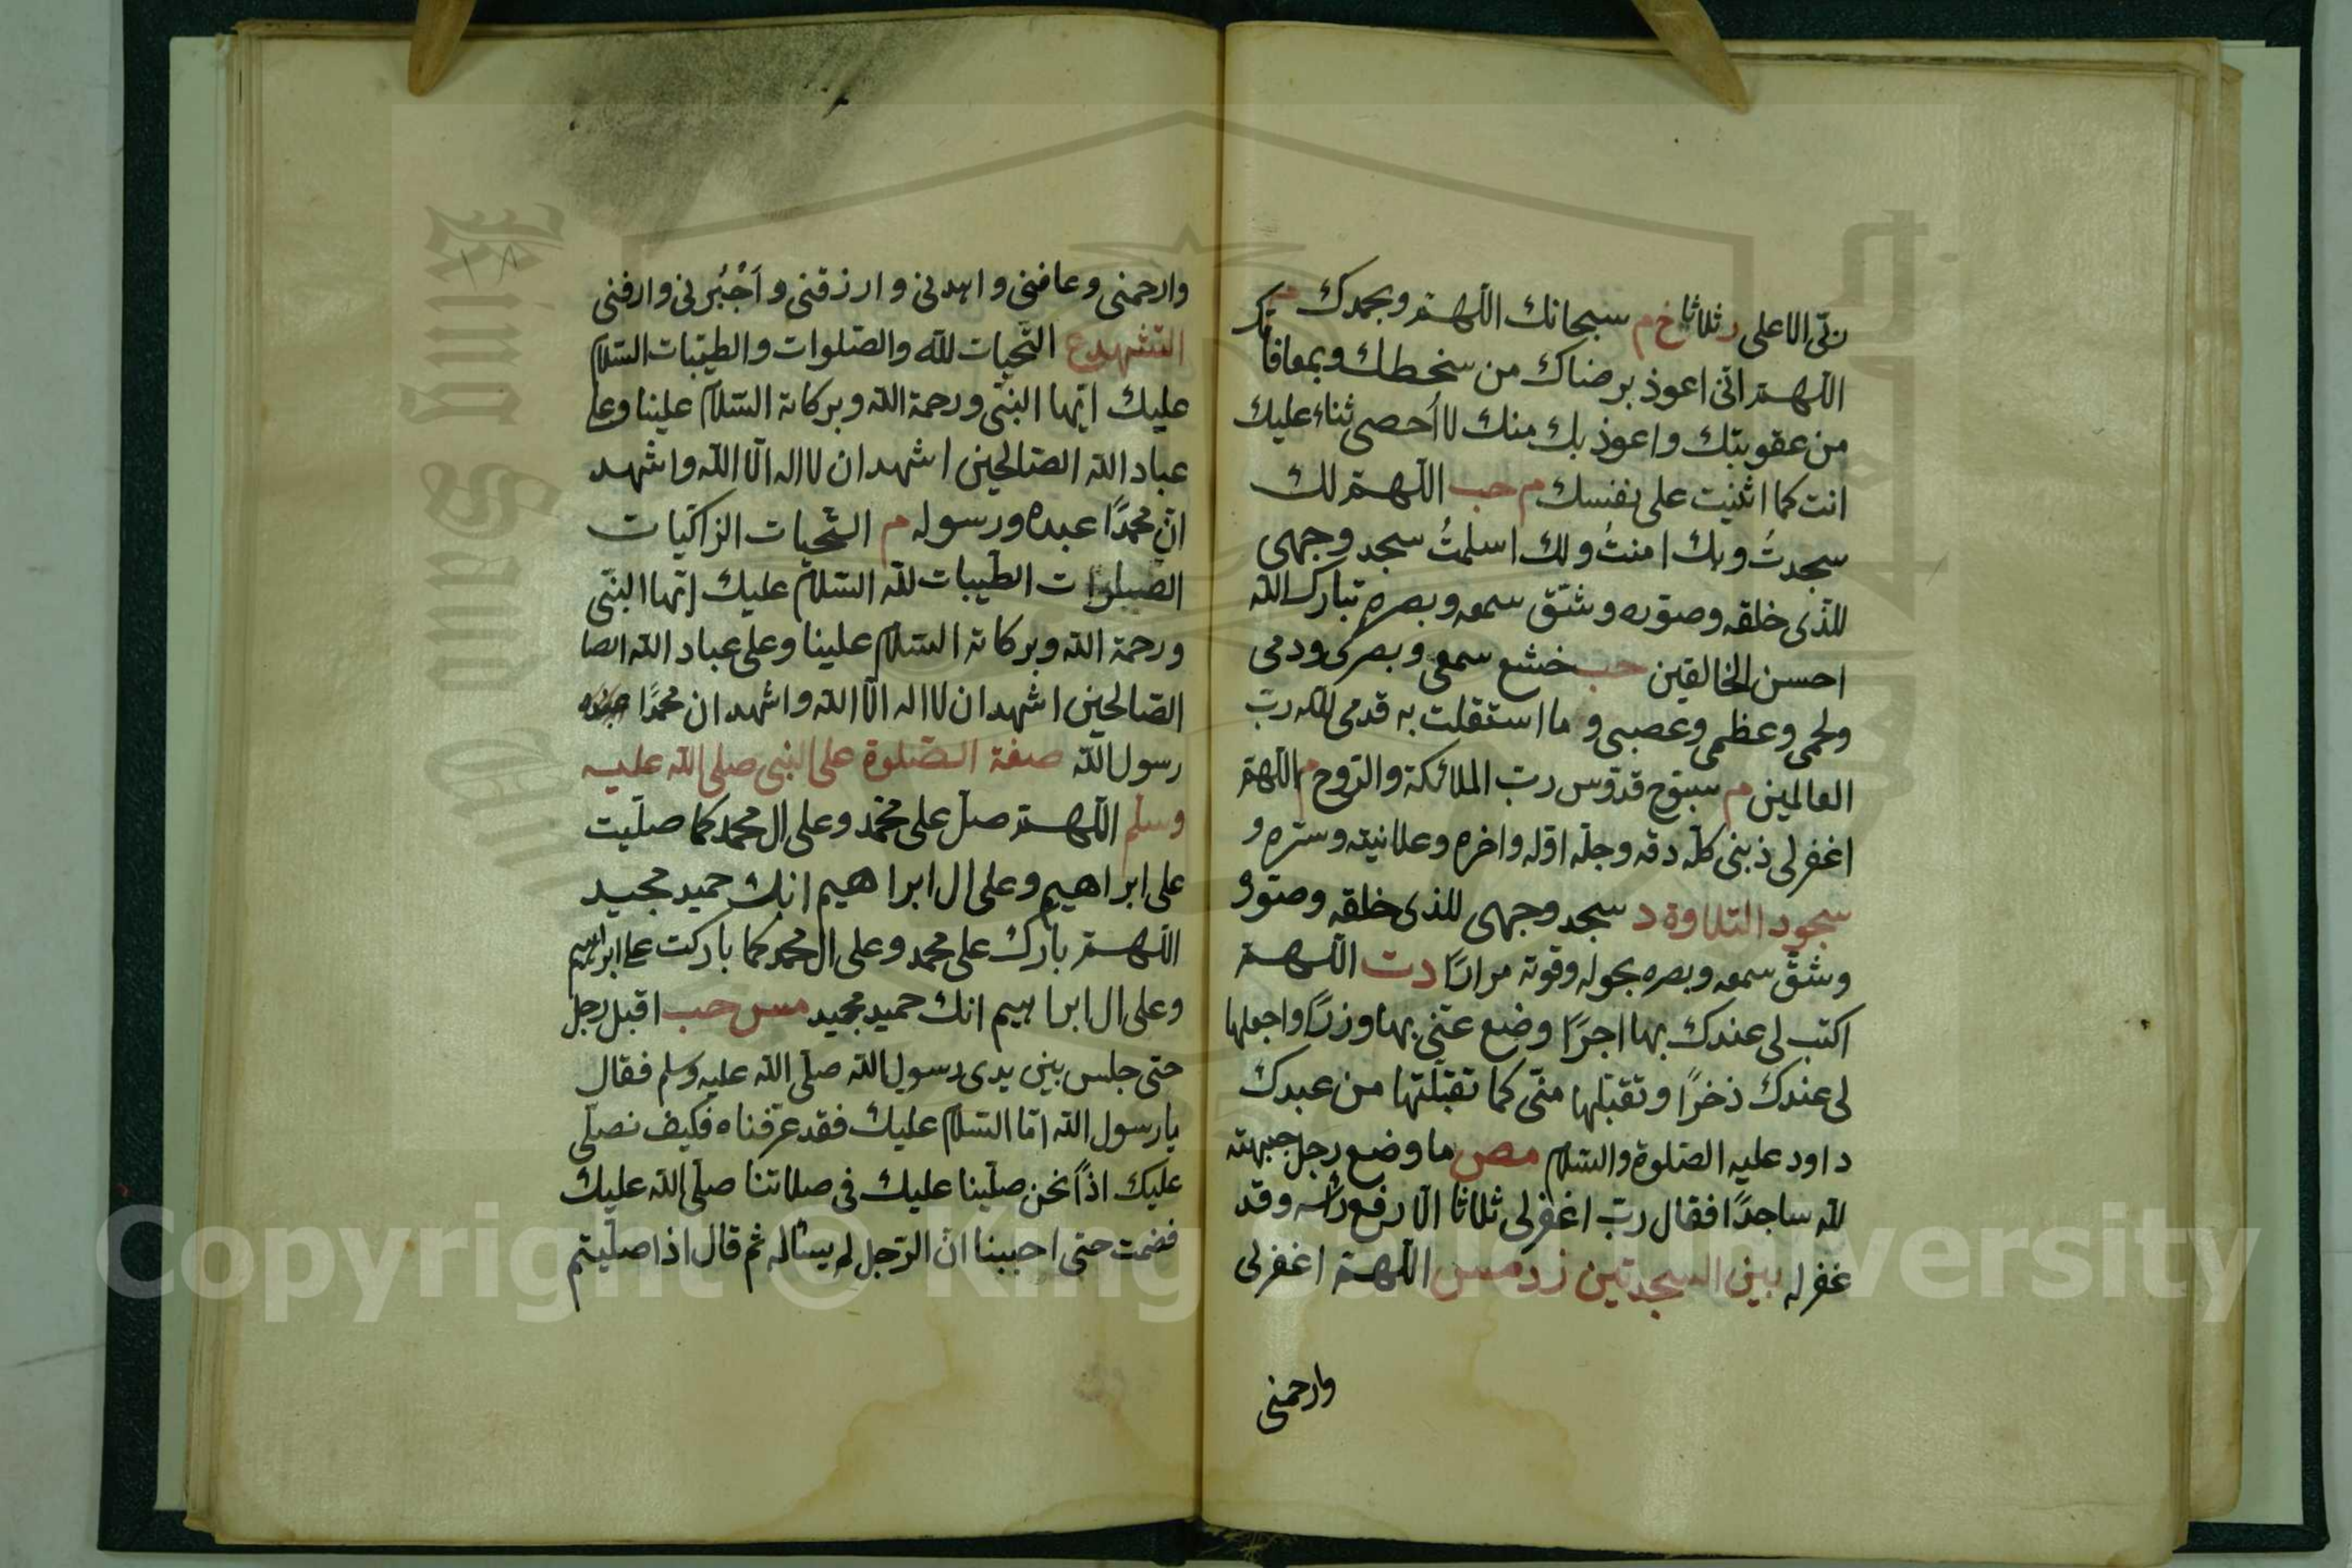 ربّى الاعلى ر ثلاثا خ م سبحانك اللّهم وبحمدك م
اللّهم انى اعوذ برضاك من سخطك وبمعافاتك
من عقوبتك واعوذ بك منك لا اُحصى ثناء عليك
انت كما اثنيت على نفسك م حب اللّهم لك
سجدتُ وبك امنتُ ولك اسلمتُ سجد وجهى
للذى خلقه وصوّره وشقّ سمعه وبصره تبارك الله
احسن الخالقين حب خشع سمعى وبصرى ودمى
ولحمى وعظمى وعصبى و ما استقلت به قدمى لله ربّ
العالمين م سبّوح قدّوس ربّ الملائكة والرّوح م اللّهم
اغفر لى ذبنى كلّه دقه وجلّه اوّله واخره وعلانيته وسرّه و
سجود التلاوة د سجد وجهى للذى خلقه وصوّره
وشقّ سمعه وبصره بحوله وقوته مرارًا د ت اللّهم
اكتب لى عندك بها اجرًا وضع عنّى بها وزرًا واجعلها
لى عندك ذخرًا وتقبّلها منّى كما تقبّلتها من عبدك
داود عليه الصّلوة والسّلام مص ما وضع رجل جبهته
لله ساجدًا فقال ربّ اغفر لى ثلاثا الّا رفع رأسه وقد
غفر له بين السجدتين ز د مس اللّهم اغفر لى
وارحمنى
وارحمنى وعافنى واهدنى وارزقنى و اَجْبُرنى وارفنى
التشهد ع التّحيات لله والصّلوات والطيّبات السّلام
عليك ايّها النبّى ورحمة الله وبركاته السّلام علينا وعلى
عباد الله الصّالحين اشهد ان لا اله الّا الله واشهد
انّ محمدًا عبده ورسوله م التّحيات الزاكيات
الصلوات الطّيبات لله السّلام عليك ايّها النبّى
ورحمة الله وبركاته السّلام علينا وعلى عباد الله الصا
الصّالحين اشهد ان لا اله الّا الله واشهد ان محمدًا عبده
رسول الله صفة الصّلوة على النبى صلى الله عليه
وسلم اللّهم صلّ على محمّد وعلى ال محمد كما صلّيت
على ابراهيم وعلى ال ابراهيم انك حميد مجيد
اللّهم بارك على محمد وعلى ال محمد كما باركت على ابراهيم
وعلى ال ابراهيم انك حميد مجيد مس حب اقبل رجل
حتى جلس بين يدى رسول الله صلّى الله عليه وسلم فقال
يا رسول الله امّا السّلام عليك فقد عرّفناه فكيف نصلّى
عليك اذاً نحن صلّينا عليك فى صلاتنا صلّى الله عليك
فصمت حتى احببنا انّ الرّجل لم يسئاله ثم قال اذا صلّيتم
Copyright © King Saud University